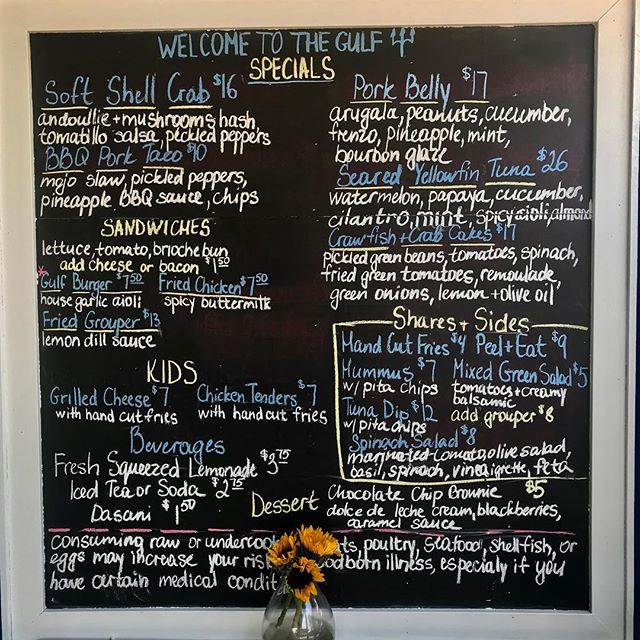 WELCOME TO THE GULF
SPECIALS
Soft Shell Crab $16
andoullie + mushrooms hash
tomatillo salsa, pickled peppers
BBQ Pork Taco $10
mojo slaw, pickled peppers,
pineapple BBQ sauce, chips
Pork Belly $17
arugala, peanuts, cucumber,
frenzo, pineapple, mint,
bourbon glaze
Seared Yellowfin Tuna $26
watermelon, papaya, cucumber,
cilantro, mint, spicy aioli, almond
Crawfish + Crab Cakes $17
pickled green beans, tomatoes, spinach,
fried green tomatoes, remoulade,
green onions, lemon + olive oil
SANDWICHES
lettuce, tomato, brioche bun
add cheese or bacon $1.50
*Gulf Burger $7.50 Fried Chicken $7.50
house garlic aioli spicy buttermilk
Fried Grouper $13
lemon dill sauce
KIDS
Grilled Cheese $7 Chicken Tenders $7
with hand cut fries with hand cut fries
Beverages
Fresh Squeezed Lemonade $3.75
Iced Tea or Soda $2.75
Dasani $1.50
Shares + Sides
Hand Cut Fries $4 Peel + Eat $9
Hummus $7 Mixed Green Salad $5
w/ pita chips tomatoes + creamy
balsamic
Tuna Dip $12 add grouper $8
w/ pita chips
Spinach Salad $8
marinated tomato, olive salad,
basil, spinach, vinegrette, feta
Dessert Chocolate Chip Brownie $5
dolce de leche cream, blackberries,
caramel sauce
Consuming raw or poultry, seafood, shellfish, or
eggs may increase your risk illness, especialy if you
have certain medical